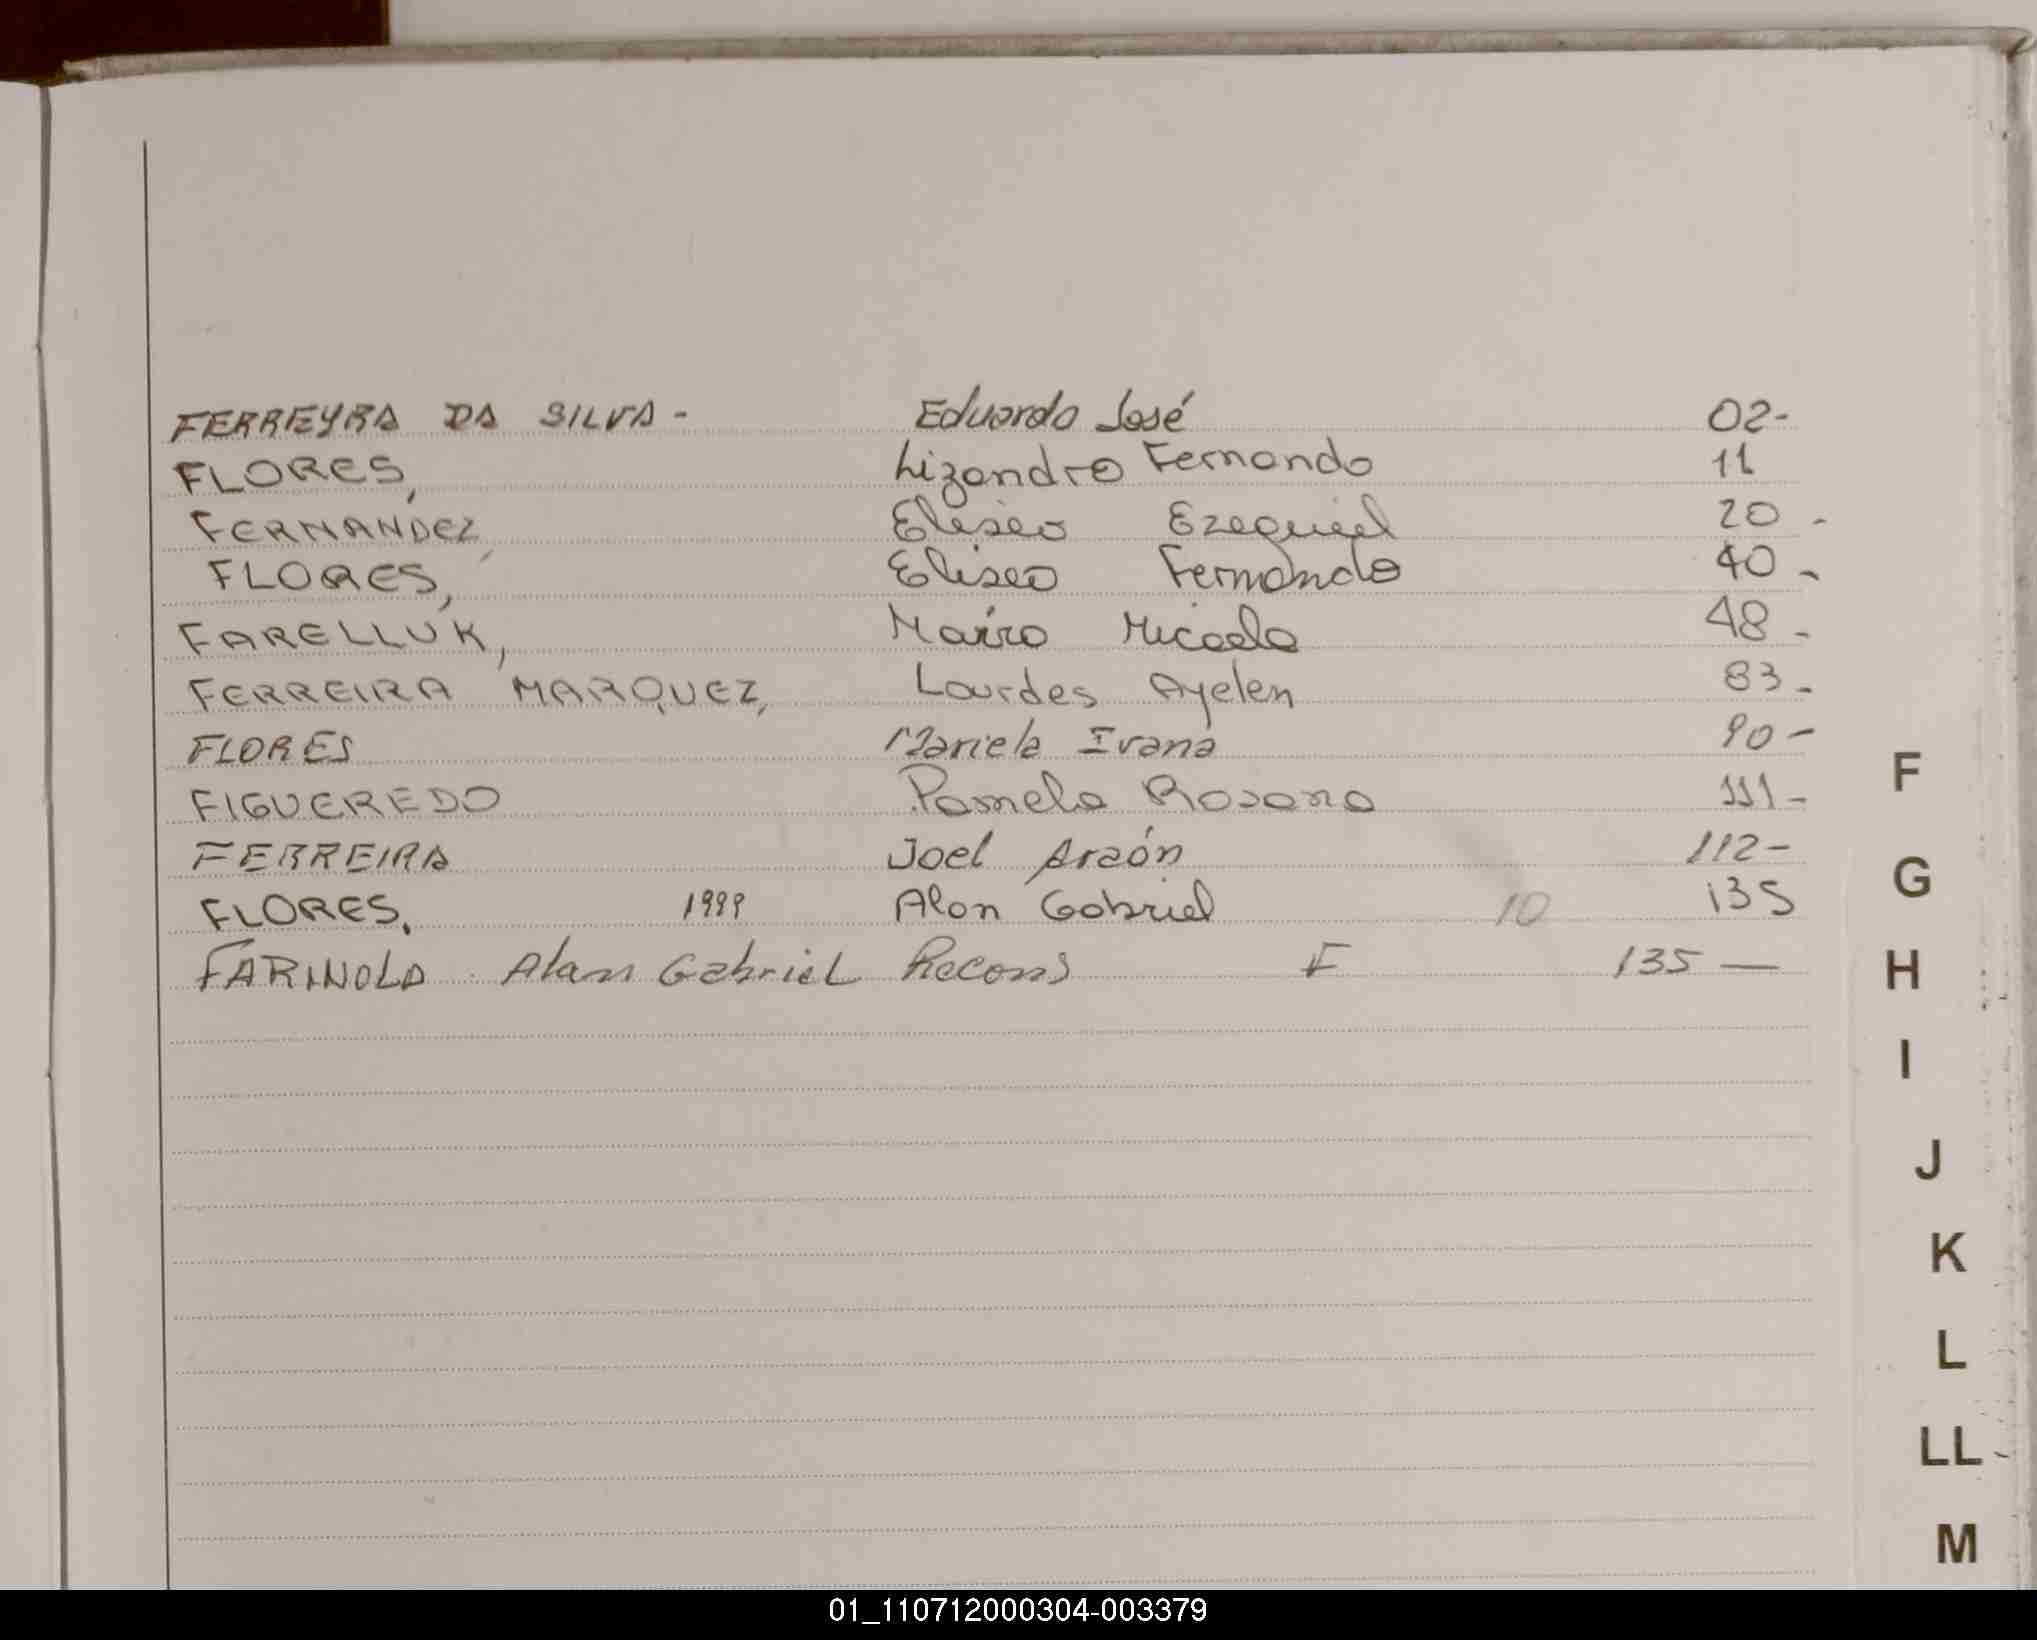 FERREYRA DA SILVA - Eduardo José 02-
FLORES, Lizandro Fernando 11
FERNANDEZ, Eliseo Ezequiel 20 -
FLORES, Eliseo Fernando 40 -
FARELLUK, Maira Micaela 48 -
FERREIRA MARQUEZ, Lourdes Ayelen 83 -
FLORES Mariela Ivana 90 -
FIGUEREDO Pamela Rosana 111 -
FERREIRA Joel Araón 112 -
FLORES. 1999 Alan Gabriel 10 135
FARINOLA Alan Gabriel Recons F 135 —
F
G
H
I
J
K
L
LL
M
01_110712000304-003379